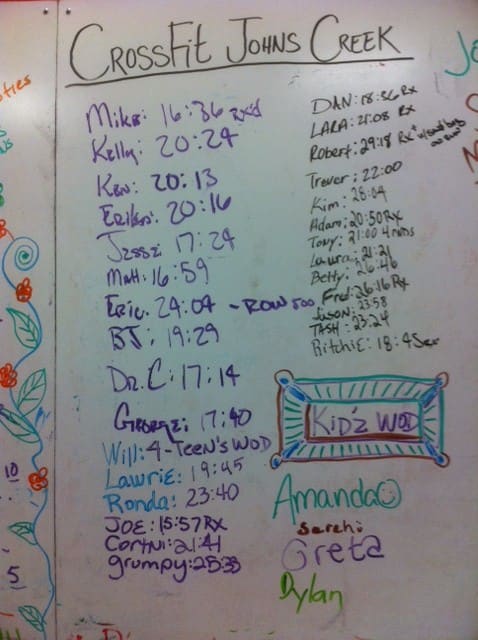 CROSSFIT JOHNS CREEK
Mike: 16:36 Rx'd
Kelly: 20:24
Ken: 20:13
Eriken: 20:16
Jesse: 17:24
Matt: 16:59
Eric: 24:04 - ROW 500
BJ: 19:29
DR. C: 17:14
George: 17:40
Will: 4-Teen's WOD
LAWRIE: 19:45
Ronda: 23:40
JOE: 15:57 Rx
Cortni: 21:41
grumpy: 25:33
DAN: 18:36 Rx
LARA: 21:08 Rx
Robert: 29:18 Rx
Trever: 22:00
Kim: 28:04
Adam: 20:50 Rx
Tony: 21:00 4 rnds
Laura: 21:21
Betty: 26:46
Fred: 26:16 Rx
JASON: 23:58
TASH: 23:24
RitchiE: 18:4
KiD'z WOD
Amanda
Sarah
Greta
Dylan
10
5